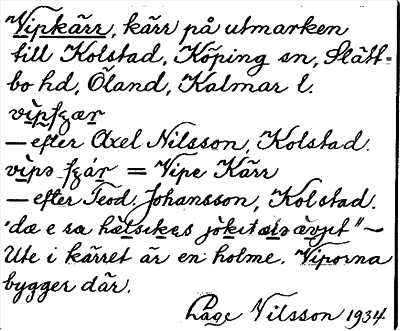 Vipkärr, kärr på utmarken
till Kolstad, Köping sn, Slätt-
bo hd, Öland, Kalmar l.
— efter Axel Nilsson, Kolstad.
= Vipe Kärr
— efter Teod. Johansson, Kolstad.
"dæ e sa
Ute i kärret är en holme. Viporna
bygger där.
Åge Nilsson 1934